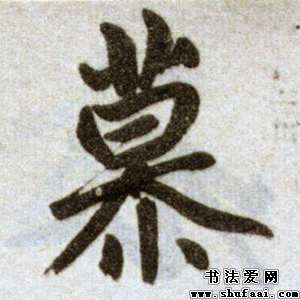 慕
书法爱网
www.shufaai.com